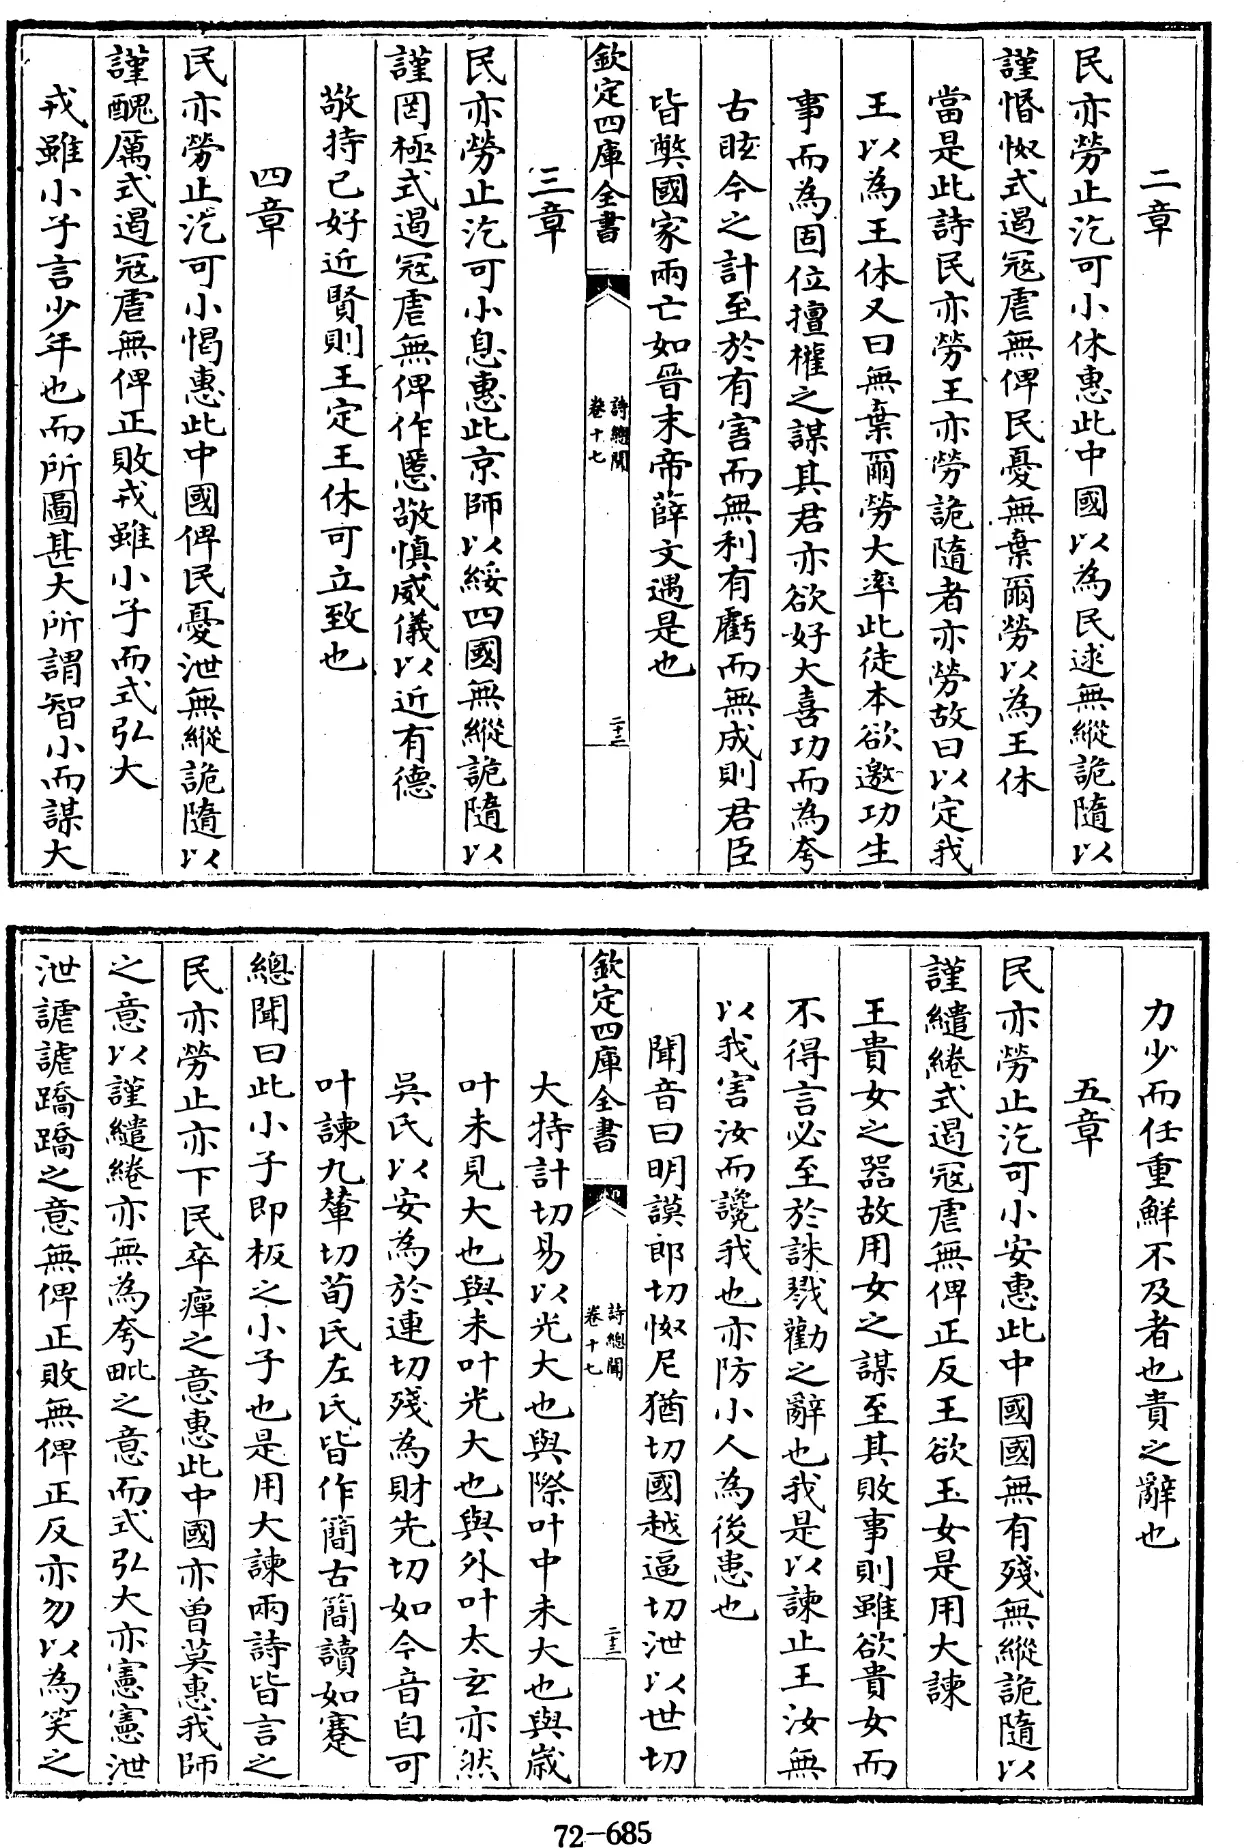 二章
民亦勞止汔可小休惠此中國以為民逑無縱詭隨以
謹惛怓式遏寇虐無俾民憂無棄爾勞以為王休
當是此詩民亦勞王亦勞詭隨者亦勞故曰以定我
王以為王休又曰無棄爾勞大率此徒本欲邀功生
事而為固位擅權之謀其君亦欲好大喜功而為夸
古眩今之計至於有害而無利有虧而無成則君臣
皆獘國家兩亡如晉末帝薛文遇是也
欽定四庫全書
詩總聞
卷十七
二十二
三章
民亦勞止汔可小息惠此京師以綏四國無縱詭隨以
謹罔極式遏寇虐無俾作慝敬慎威儀以近有德
敬持己好近賢則王定王休可立致也
四章
民亦勞止汔可小愒惠此中國俾民憂泄無縱詭隨以
謹醜厲式遏寇虐無俾正敗戎雖小子而式弘大
戎雖小子言少年也而所圖甚大所謂智小而謀大
力少而任重鮮不及者也責之辭也
五章
民亦勞止汔可小安惠此中國國無有殘無縱詭隨以
謹繾綣式遏寇虐無俾正反王欲玉女是用大諫
王貴女之器故用女之謀至其敗事則雖欲貴女而
不得言必至於誅戮勸之辭也我是以諫止王汝無
以我害汝而讒我也亦防小人為後患也
聞音曰明謨郎切怓尼猶切國越逼切泄以世切
欽定四庫全書
詩總聞
卷十七
二十三
大持計切易以光大也與際叶中未大也與歲
叶未見大也與未叶光大也與外叶太玄亦然
吳氏以安為於連切殘為財先切如今音自可
叶諫九輦切荀氏左氏皆作簡古簡讀如蹇
總聞曰此小子即板之小子也是用大諫兩詩皆言之
民亦勞止亦下民卒癉之意惠此中國亦曽莫惠我師
之意以謹繾綣亦無為夸毗之意而式弘大亦憲憲泄
泄謔謔蹻蹻之意無俾正敗無俾正反亦勿以為笑之
72-685